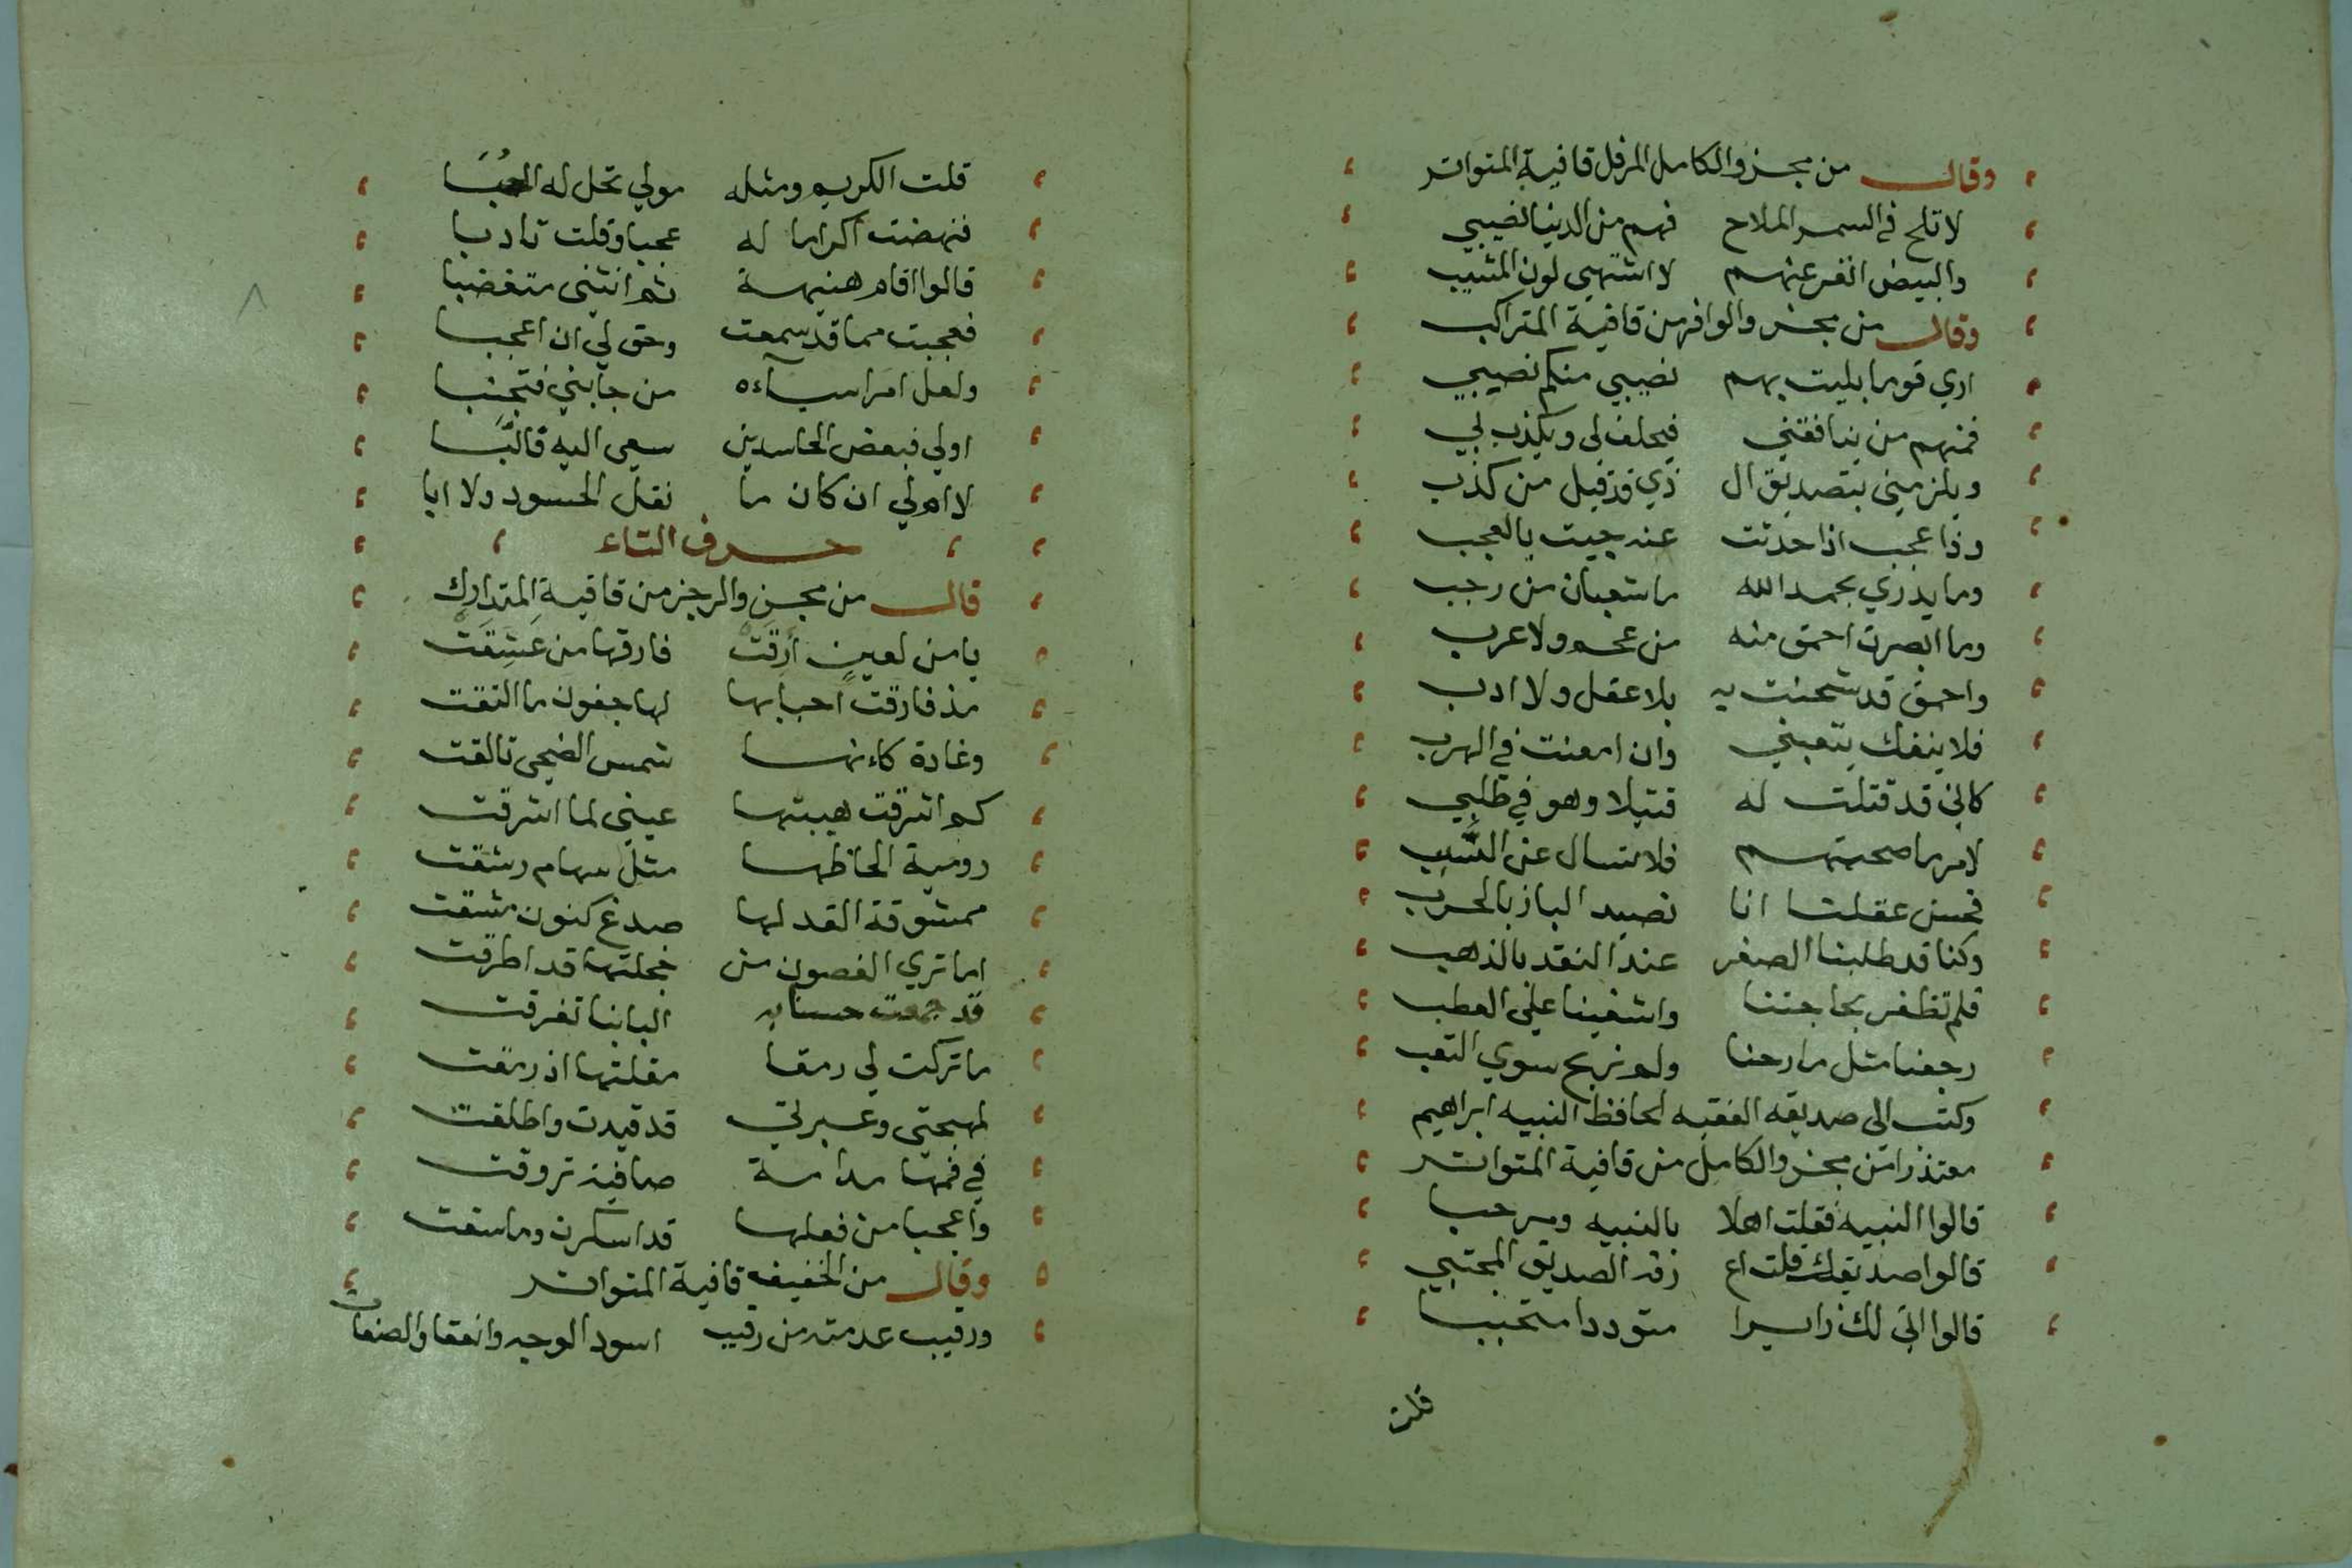 وقال من مجزو الكامل المرفل قافية المتواتر
لا تلح في السمر الملاح فهم من الدنيا نصيبي
والبيض انفر عنهم لا اشتهي لون المشيب
وقال من مجزو الوافر من قافية المتراكب
اري قوما بليت بهم نصيبي منكم نصيبي
فمنهم من ينافقني فيحلف لي ويكذب لي
ويلزمني بتصديق ال ذي قد قيل من كذب
وذا عجب اذا حدثت عنه جيت بالعجب
وما يدري بحمد الله ما شعبان من رجب
وما ابصرت احمق منه من عجم ولا عرب
واحمق قد شحنت به بلا عقل ولا ادب
فلا ينفك يتعبني وان امعنت في الهرب
كاني قد قتلت له قتيلا وهو في طلبي
لامر ما صحبتهم فلا تسال عن السبب
فحسن عقلنا انا نصيد الباز بالخرب
وكنا قد طلبنا الصفر عند النقد بالذهب
فلم نظفر بحاجتنا واشفينا علي العطب
رجعنا مثل ما رحنا ولم نربح سوي التعب
وكتب الى صديقه الفقيه الحافظ النبيه ابراهيم
معتذرا من مجزو الكامل من قافية المتواتر
قالوا النبيه فقلت اهلا بالنبيه ومرحبا
قالوا صديقك قلت اع رفه الصديق المجتبي
قالوا اتى لك زايرا متوددا متحببا
قلت
قلت الكريم ومثله مولي تحل له الحُبَا
فنهضت اكراما له عجبا وقلت تادبا
قالوا اقام هنيهة ثم انثنى متغضبا
فعجبت مما قد سمعت وحق لي ان اعجبا
ولعل امرا سآءه من جانبي فتجنبا
اولي فبعض الحاسدين سعى اليه قالبا
لا ام لي ان كان ما نقل الحسود ولا ابا
حرف التاء
قال من مجزو الرجز من قافية المتدارك
يا من لعين أرقت فارقها من عشقت
مذ فارقت احبابها لها جفون ما التقت
وغادة كاءنها شمس الضحى تالقت
كم اشرقت هيبتها عيني لما اشرقت
رومية الحاظها مثل سهام رشقت
ممشوقة القد لها صدغ كنون مشقت
اما تري الغصون من خجلتها قد اطرقت
قد جمعت حسنا به البابنا تفرقت
ما تركت لي رمقا مقلتها اذ رمقت
لمهجتي وعبرتي قد قيدت واطلقت
في فمها مدامة صافية تروقت
واعجبا من فعلها قد اسكرت وما سقت
وقال من الخفيف قافية المتواتر
ورقيب عدمته من رقيب اسود الوجه والقفا والصفات